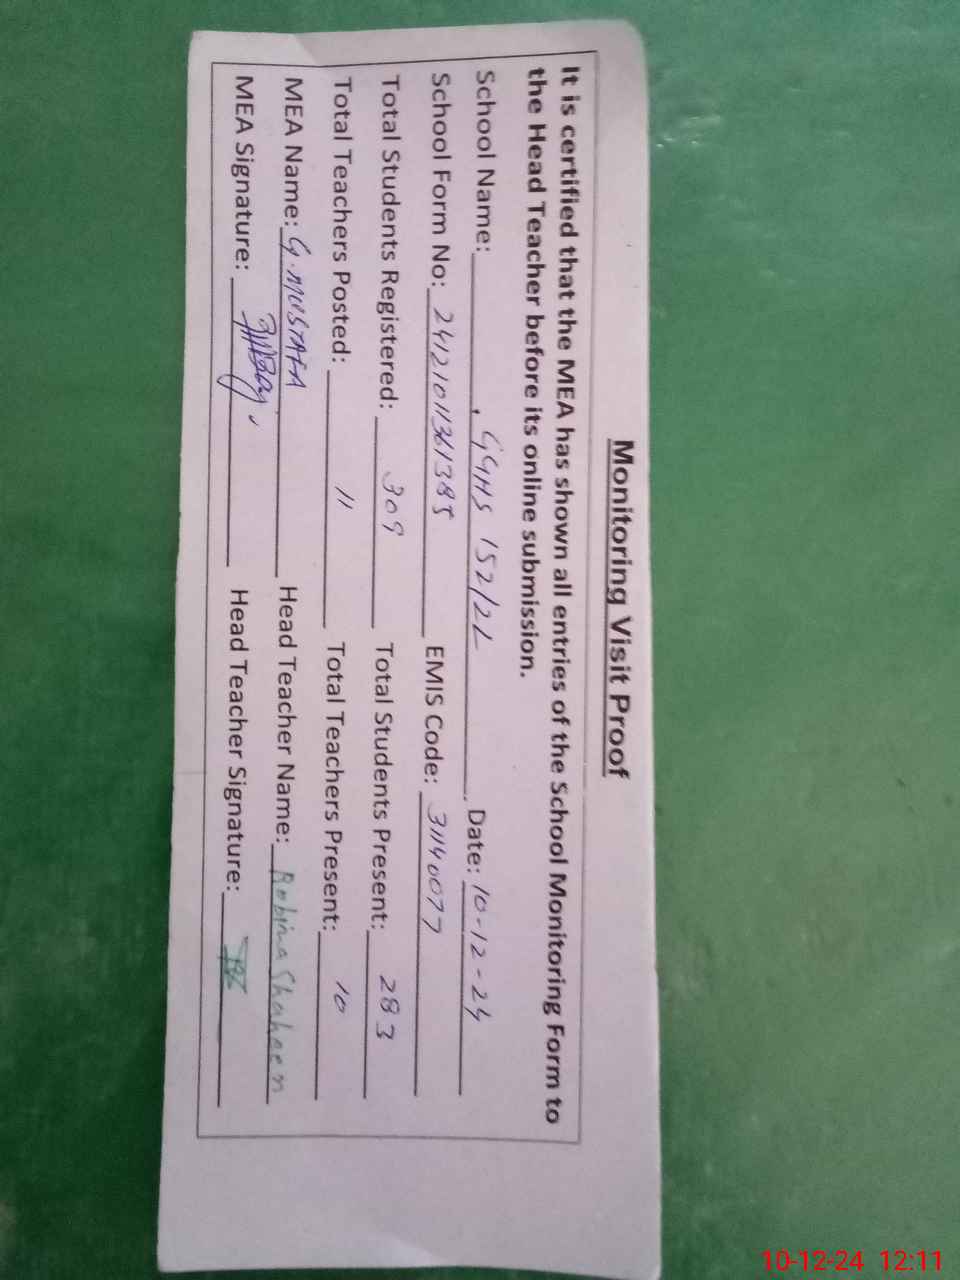 Monitoring Visit Proof
It is certified that the MEA has shown all entries of the School Monitoring Form to
the Head Teacher before its online submission.
School Name: GGHS 152/2L Date: 10-12-24
School Form No: 2412101361385 EMIS Code: 31140077
Total Students Registered: 309 Total Students Present: 283
Total Teachers Posted: 11 Total Teachers Present: 10
MEA Name: G.MUSTAFA Head Teacher Name: Robina Shaheen
MEA Signature: Head Teacher Signature:
10-12-24 12:11